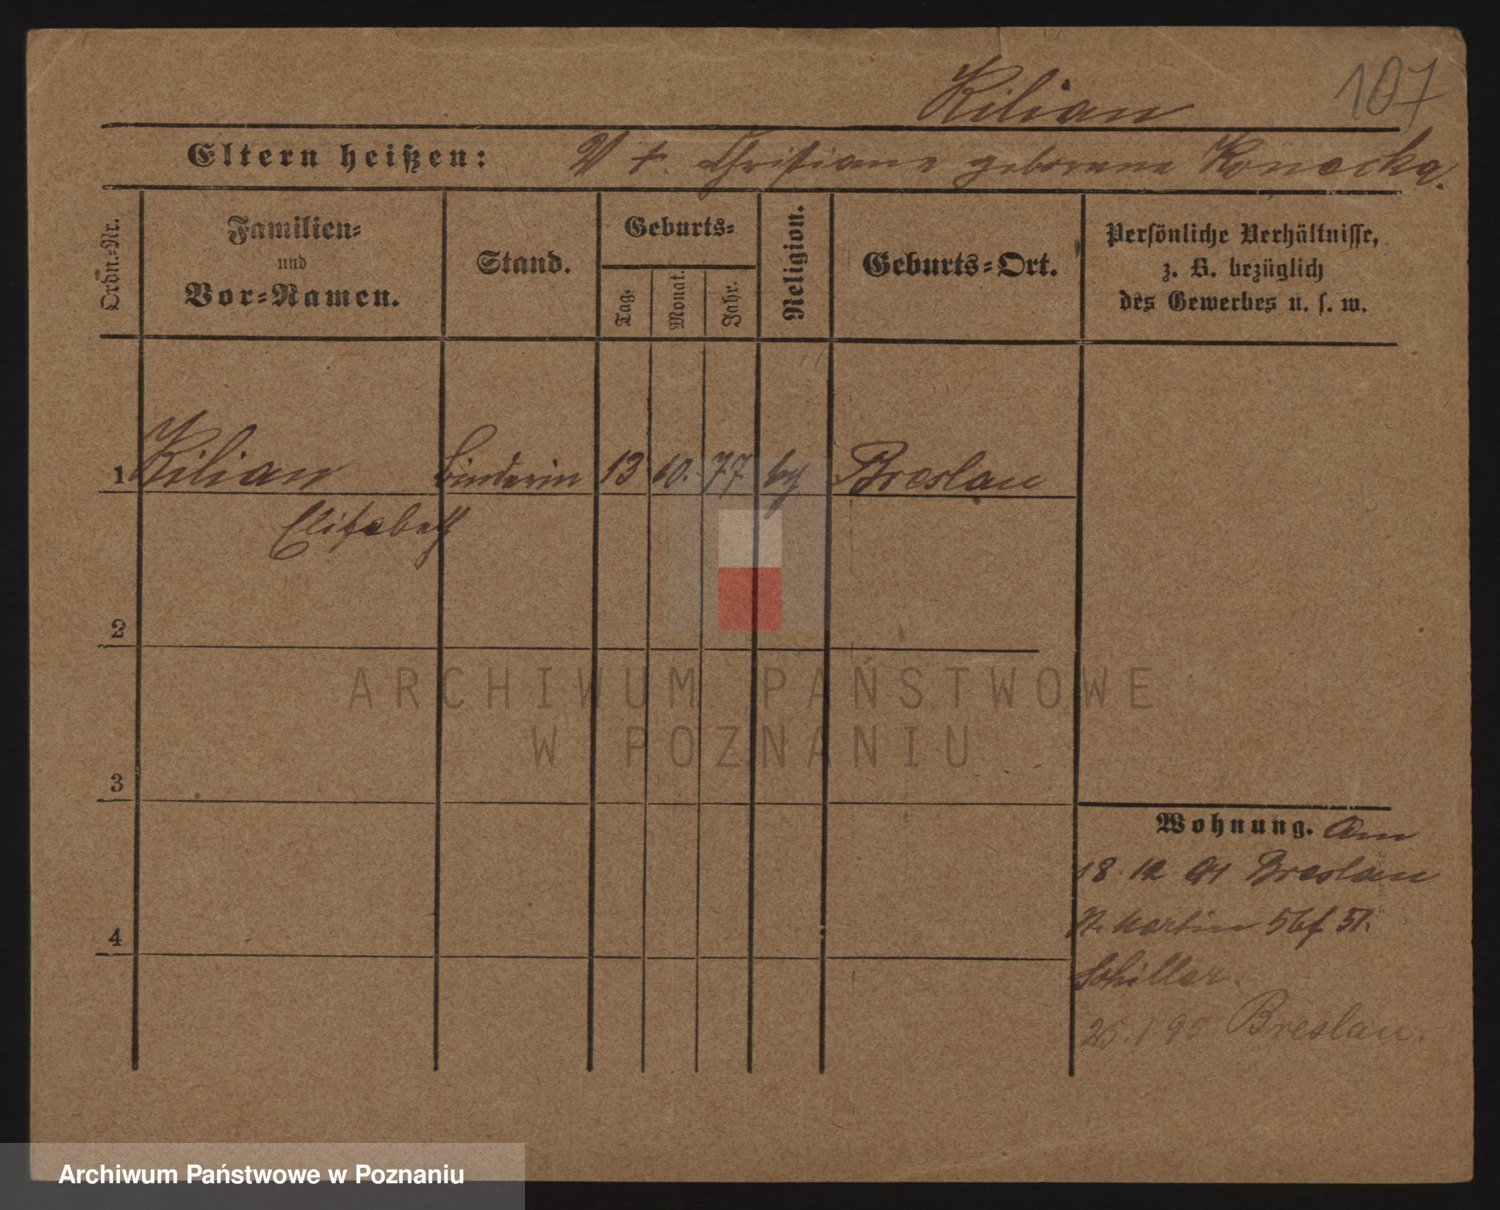 Kilian 107
Eltern heißen: V †. Christiane geborene
Ordn.-Nr.
Familien-
und
Vor-Namen.
Stand.
Geburts-
Tag.
Monat.
Jahr.
Religion.
Geburts-Ort.
Persönliche Verhältnisse,
z. B. bezüglich
des Gewerbes u. s. w.
1 Kilian Binderin 13 10. 77 Breslau
Elisabeth
2
3
4
Wohnung. Am
18 12 Breslau
St. Martin 56
Schiller.
25. 1 95 Breslau.
ARCHIWUM PAŃSTWOWE
W POZNANIU
Archiwum Państwowe w Poznaniu